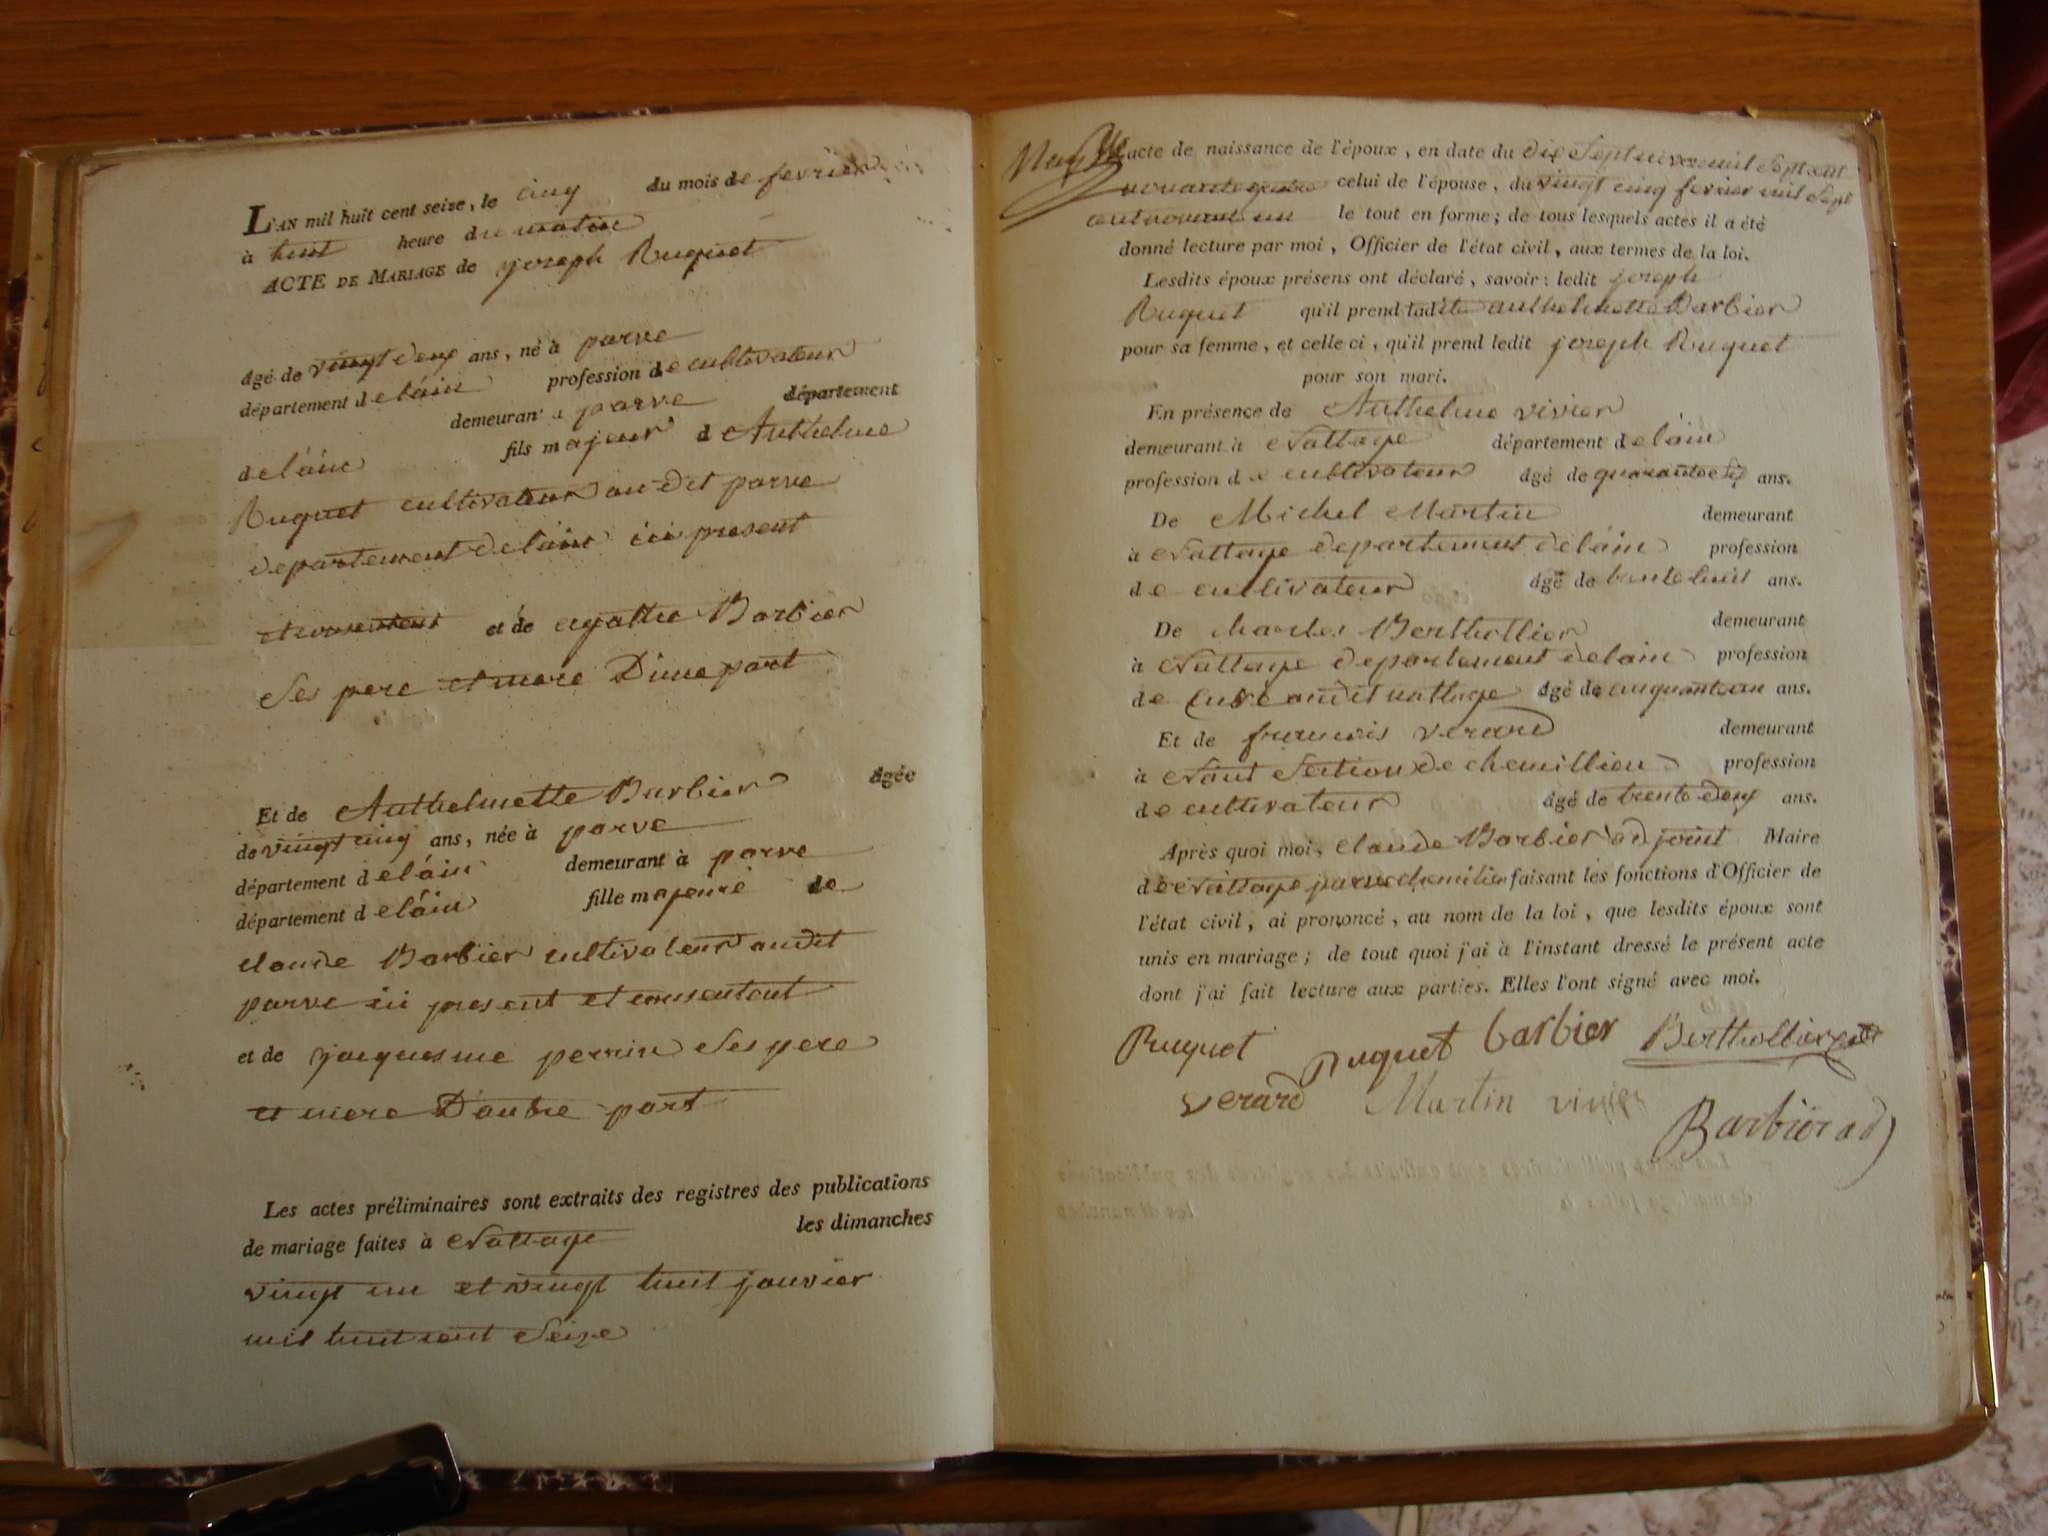 L'AN mil huit cent seize, le cinq du mois de fevrier
à huit heure du matin
ACTE DE MARIAGE de joseph Ruquet
âgé de vingt deux ans, né à parve
département de láin profession de cultivateur
demeurant à parve département
de láin fils majeur d Anthelme
Ruquet cultivateur au dit parve
departement de láin ici present
et consentent et de agathe Barbier
Ses pere et mere D'une part
Et de Anthelmette Barbier âgée
de vingt cinq ans, née à parve
département de láin demeurant à parve
département de láin fille majeure de
claude Barbier cultivateur audit
parve ici present et consentent
et de jacquesme perrin Ses pere
et mere D'autre part
Les actes préliminaires sont extraits des registres des publications
de mariage faites à Nattage les dimanches
vingt un et vingt huit janvier
mil huit cent Seize
acte de naissance de l'époux, en date du dix Sept mil Sept cent
nonante quatre celui de l'épouse, du vingt cinq fevrier mil Sept
cent nonante un le tout en forme; de tous lesquels actes il a été
donné lecture par moi, Officier de l'état civil, aux termes de la loi.
Lesdits époux présens ont déclaré, savoir: ledit joseph
Ruquet qu'il prend ladite anthelmette Barbier
pour sa femme, et celle ci, qu'il prend ledit joseph Ruquet
pour son mari.
En présence de Anthelme vivier
demeurant à Nattage département de láin
profession de cultivateur âgé de quarante Six ans.
De Michel Martin demeurant
à Nattage departement de láin profession
de cultivateur âgé de trente huit ans.
De charles Berthollier demeurant
à Nattage departement de lain profession
de Curé audit nattage âgé de cinquante un ans.
Et de francois verard demeurant
à Nant Section de chemillieu profession
de cultivateur âgé de trente deux ans.
Après quoi moi, claude Barbier adjoint Maire
de Nattage parve chemilieu faisant les fonctions d'Officier de
l'état civil, ai prononcé, au nom de la loi, que lesdits époux sont
unis en mariage; de tout quoi j'ai à l'instant dressé le présent acte
dont j'ai fait lecture aux parties. Elles l'ont signé avec moi.
Ruquet Ruquet barbier Berthollier
verard Martin vivier
Barbier adj